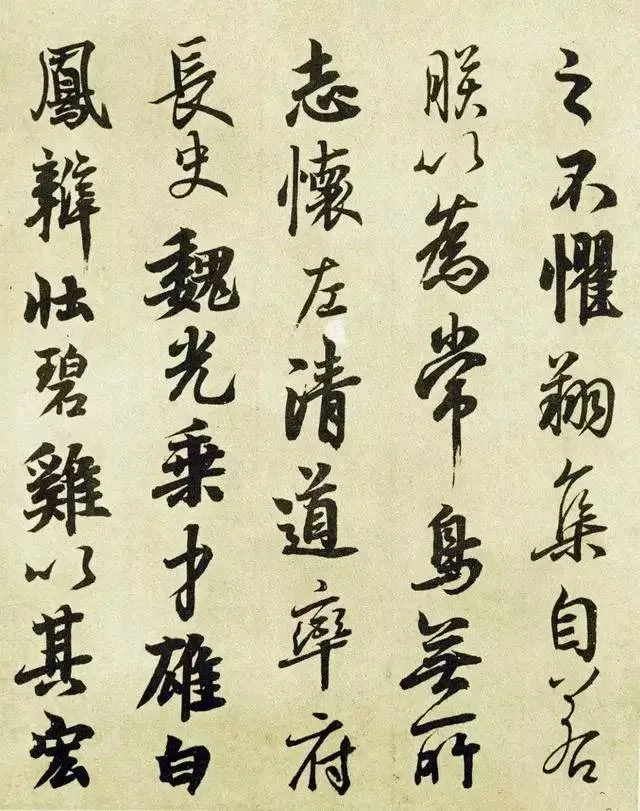 之不懼翔集自若
朕以為常鳥無所
志懷左清道率府
長史魏光乗才雄白
鳳辯壯碧雞以其宏